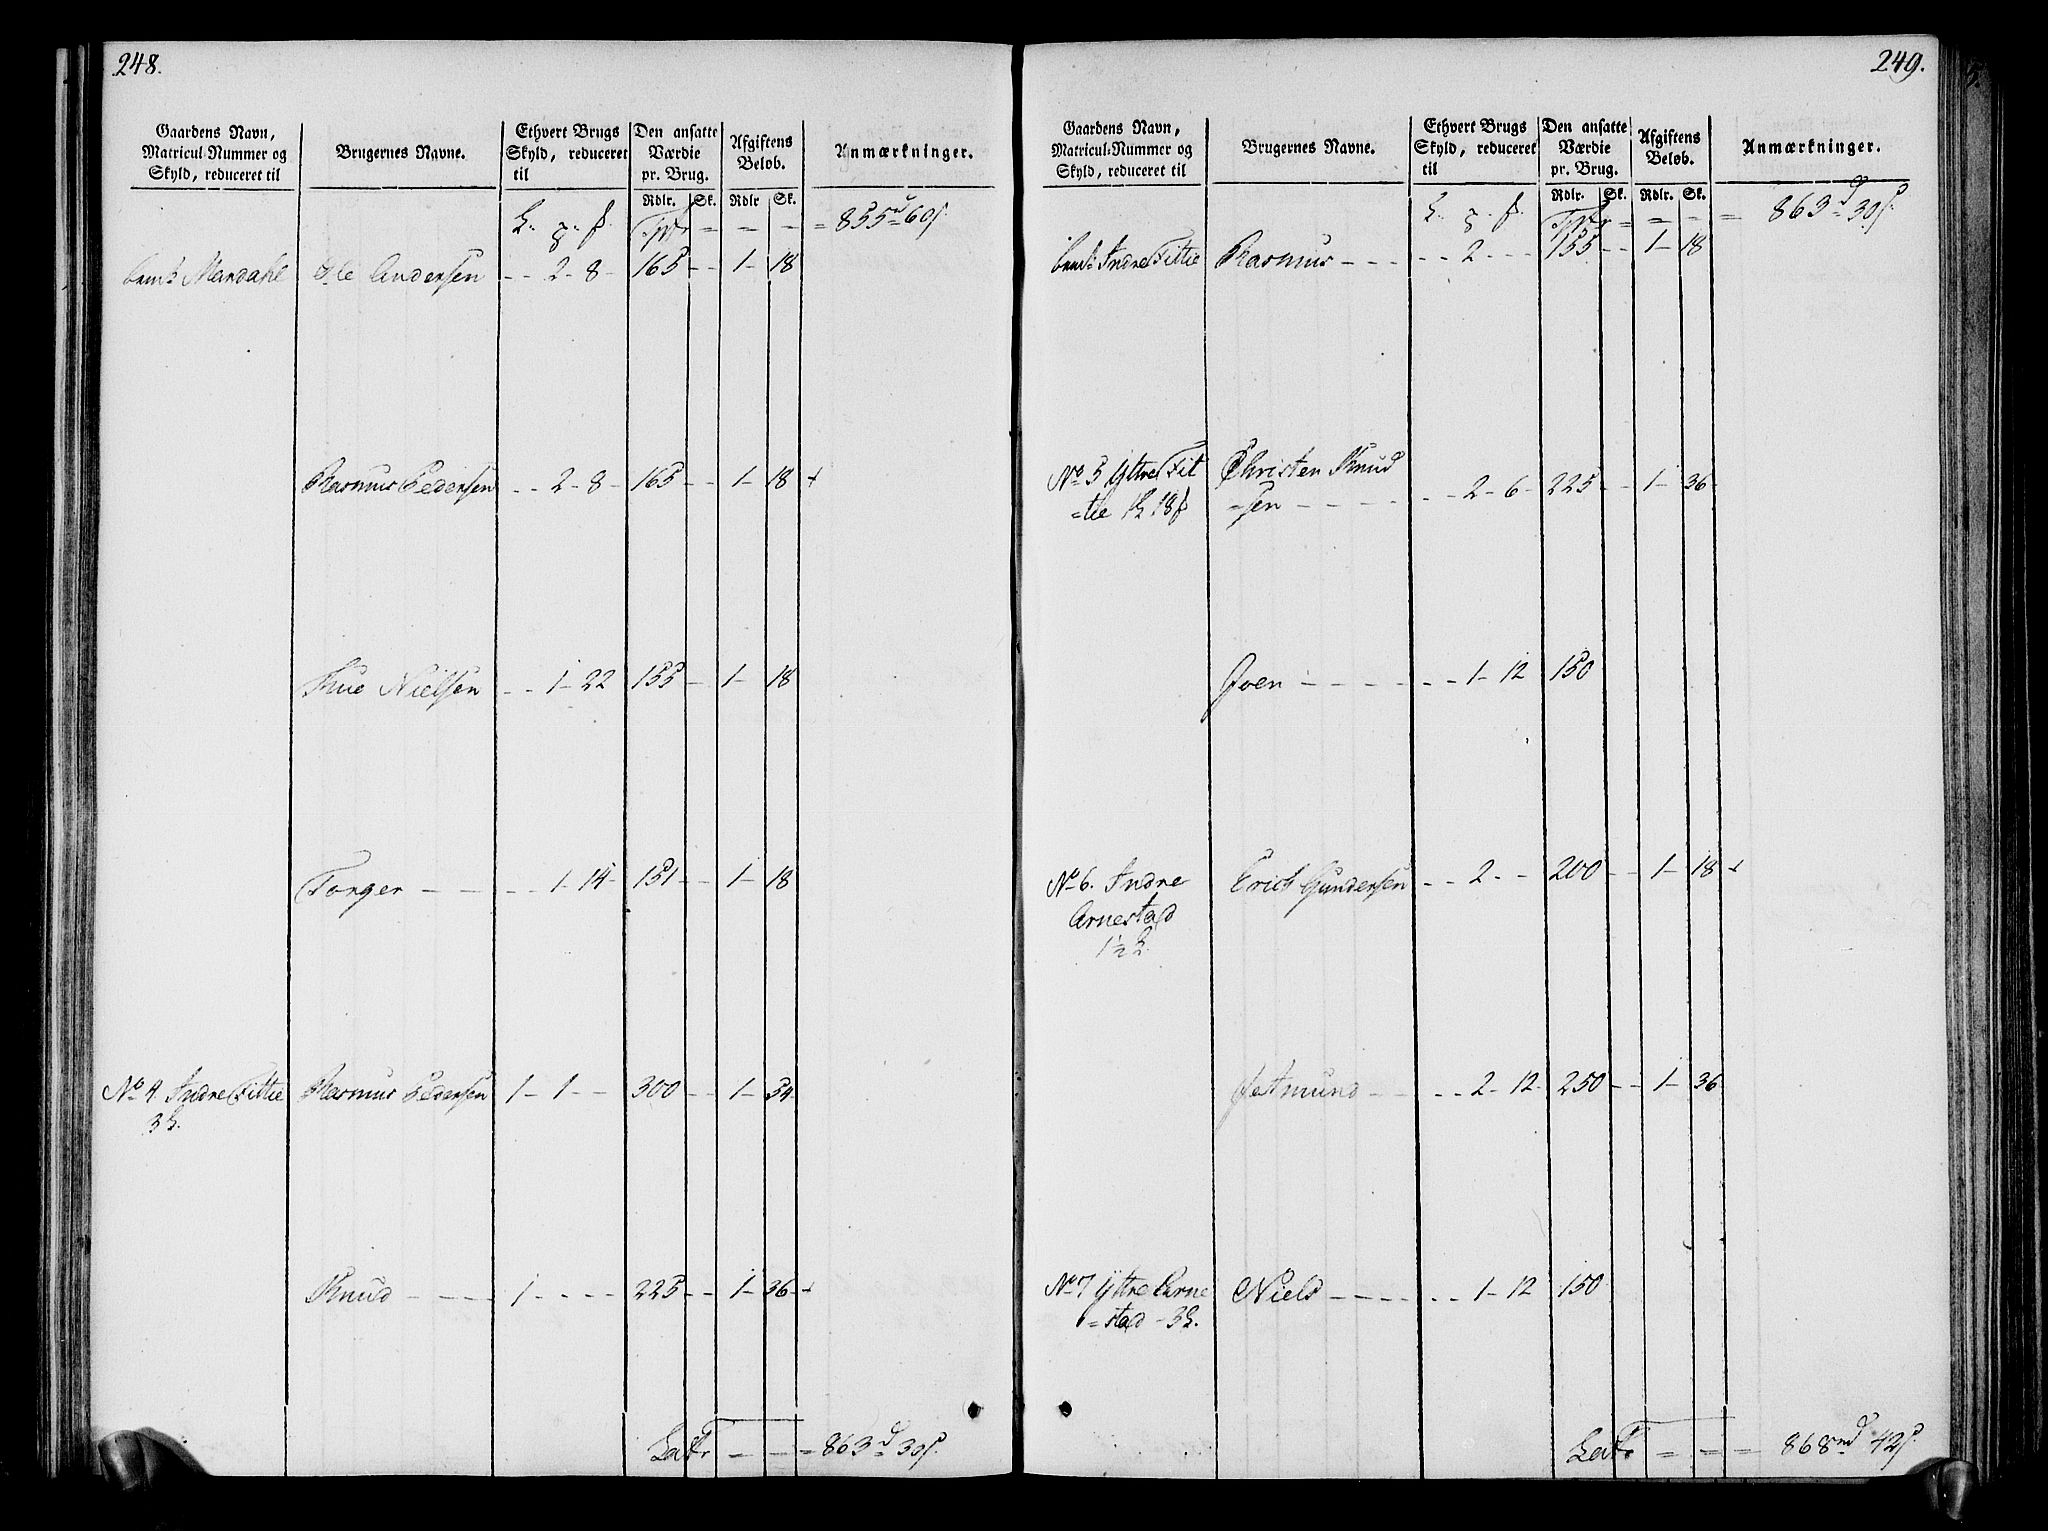 248.
Gaardens Navn, Matricul-Nummer og Skyld, reduceret til
Brugernes Navne.
Ethvert Brugs Skyld, reduceret til
Den ansatte Værdie pr. Brug.
Afgiftens Beløb.
Anmærkninger.
Rdlr. Sk. Rdlr Sk.
= 855 d 60 s.
Mardahl Ole Andersen - - 2 - 8 - 165 - - 1 - 18
Rasmus Pedersen - - 2 - 8 - 165 - - 1 - 18 +
Knue Nielsen - - 1 - 22 155 - - 1 - 18
Torger - - - - 1 - 14 - 151 - - 1 - 18
No 4. Indre Fittie Rasmus Pedersen 1 - 1 - - 300 - - 1 - 54
3
Knud - - - - 1 - - - - 225 - - 1 - 36 +
Latr - - = 863 d 30 s.
249.
Gaardens Navn, Matricul-Nummer og Skyld, reduceret til
Brugernes Navne.
Ethvert Brugs Skyld, reduceret til
Den ansatte Værdie pr. Brug.
Afgiftens Beløb.
Anmærkninger.
Rdlr. Sk. Rdlr. Sk.
= 863 d 30 s.
Indre Fittie Rasmus - - - - - 2 - - - 155 - - 1 - 18
No 5 Yttre Fit Christen Knud
=tie 18 =sen - - - - - - 2 - 6 - 225 - - 1 - 36
Joen - - - - - - - 1 - 12 150
No 6. Indre Erich Gundersen - - 2 - - 200 - - 1 - 18 +
Arnestad
1 1/2
Jetmund - - - - 2 - 12 - 250 - - 1 - 36
No 7 Yttre Arne Niels - - - - - - 1 - 12 150
=stad - 3
Latr = - - 868 42 s.